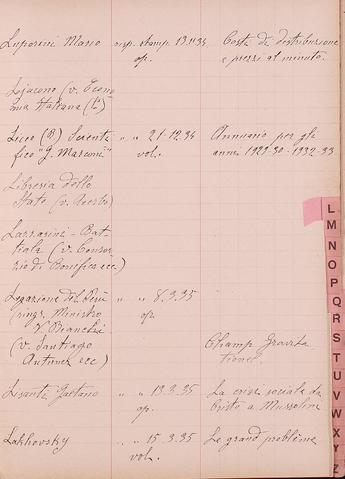 Luporini Mario risp. stamp. 13.11.34 Costi di distribuzione
op. e prezzi al minuto.
Lojacono (v. Econo
mia Italiana (L')
Liceo (R.) Scienti " " 21.12.34 Annuario per gli
fico "G. Marconi" vol. anni 1929-30-1932-33
Libreria dello
Stato (v. Acerbo)
Lazzarini-Bat
tiala (v. Consor
zio di Bonifica ecc)
Legazione del Perù " " 8.3.35
(ring. Ministro op.
V. Bianchi
(v. Santiago Champ Gravita
Antunez ecc) tionel.
Lisanti Gaetano " " 13.3.35 La crisi sociale da
op. Cristo a Mussolini
Lakhovsky " " 15.3.35 Le grand problème
vol.
L
M
N
O
P
Q
R
S
T
U
V
W
X
Y
Z